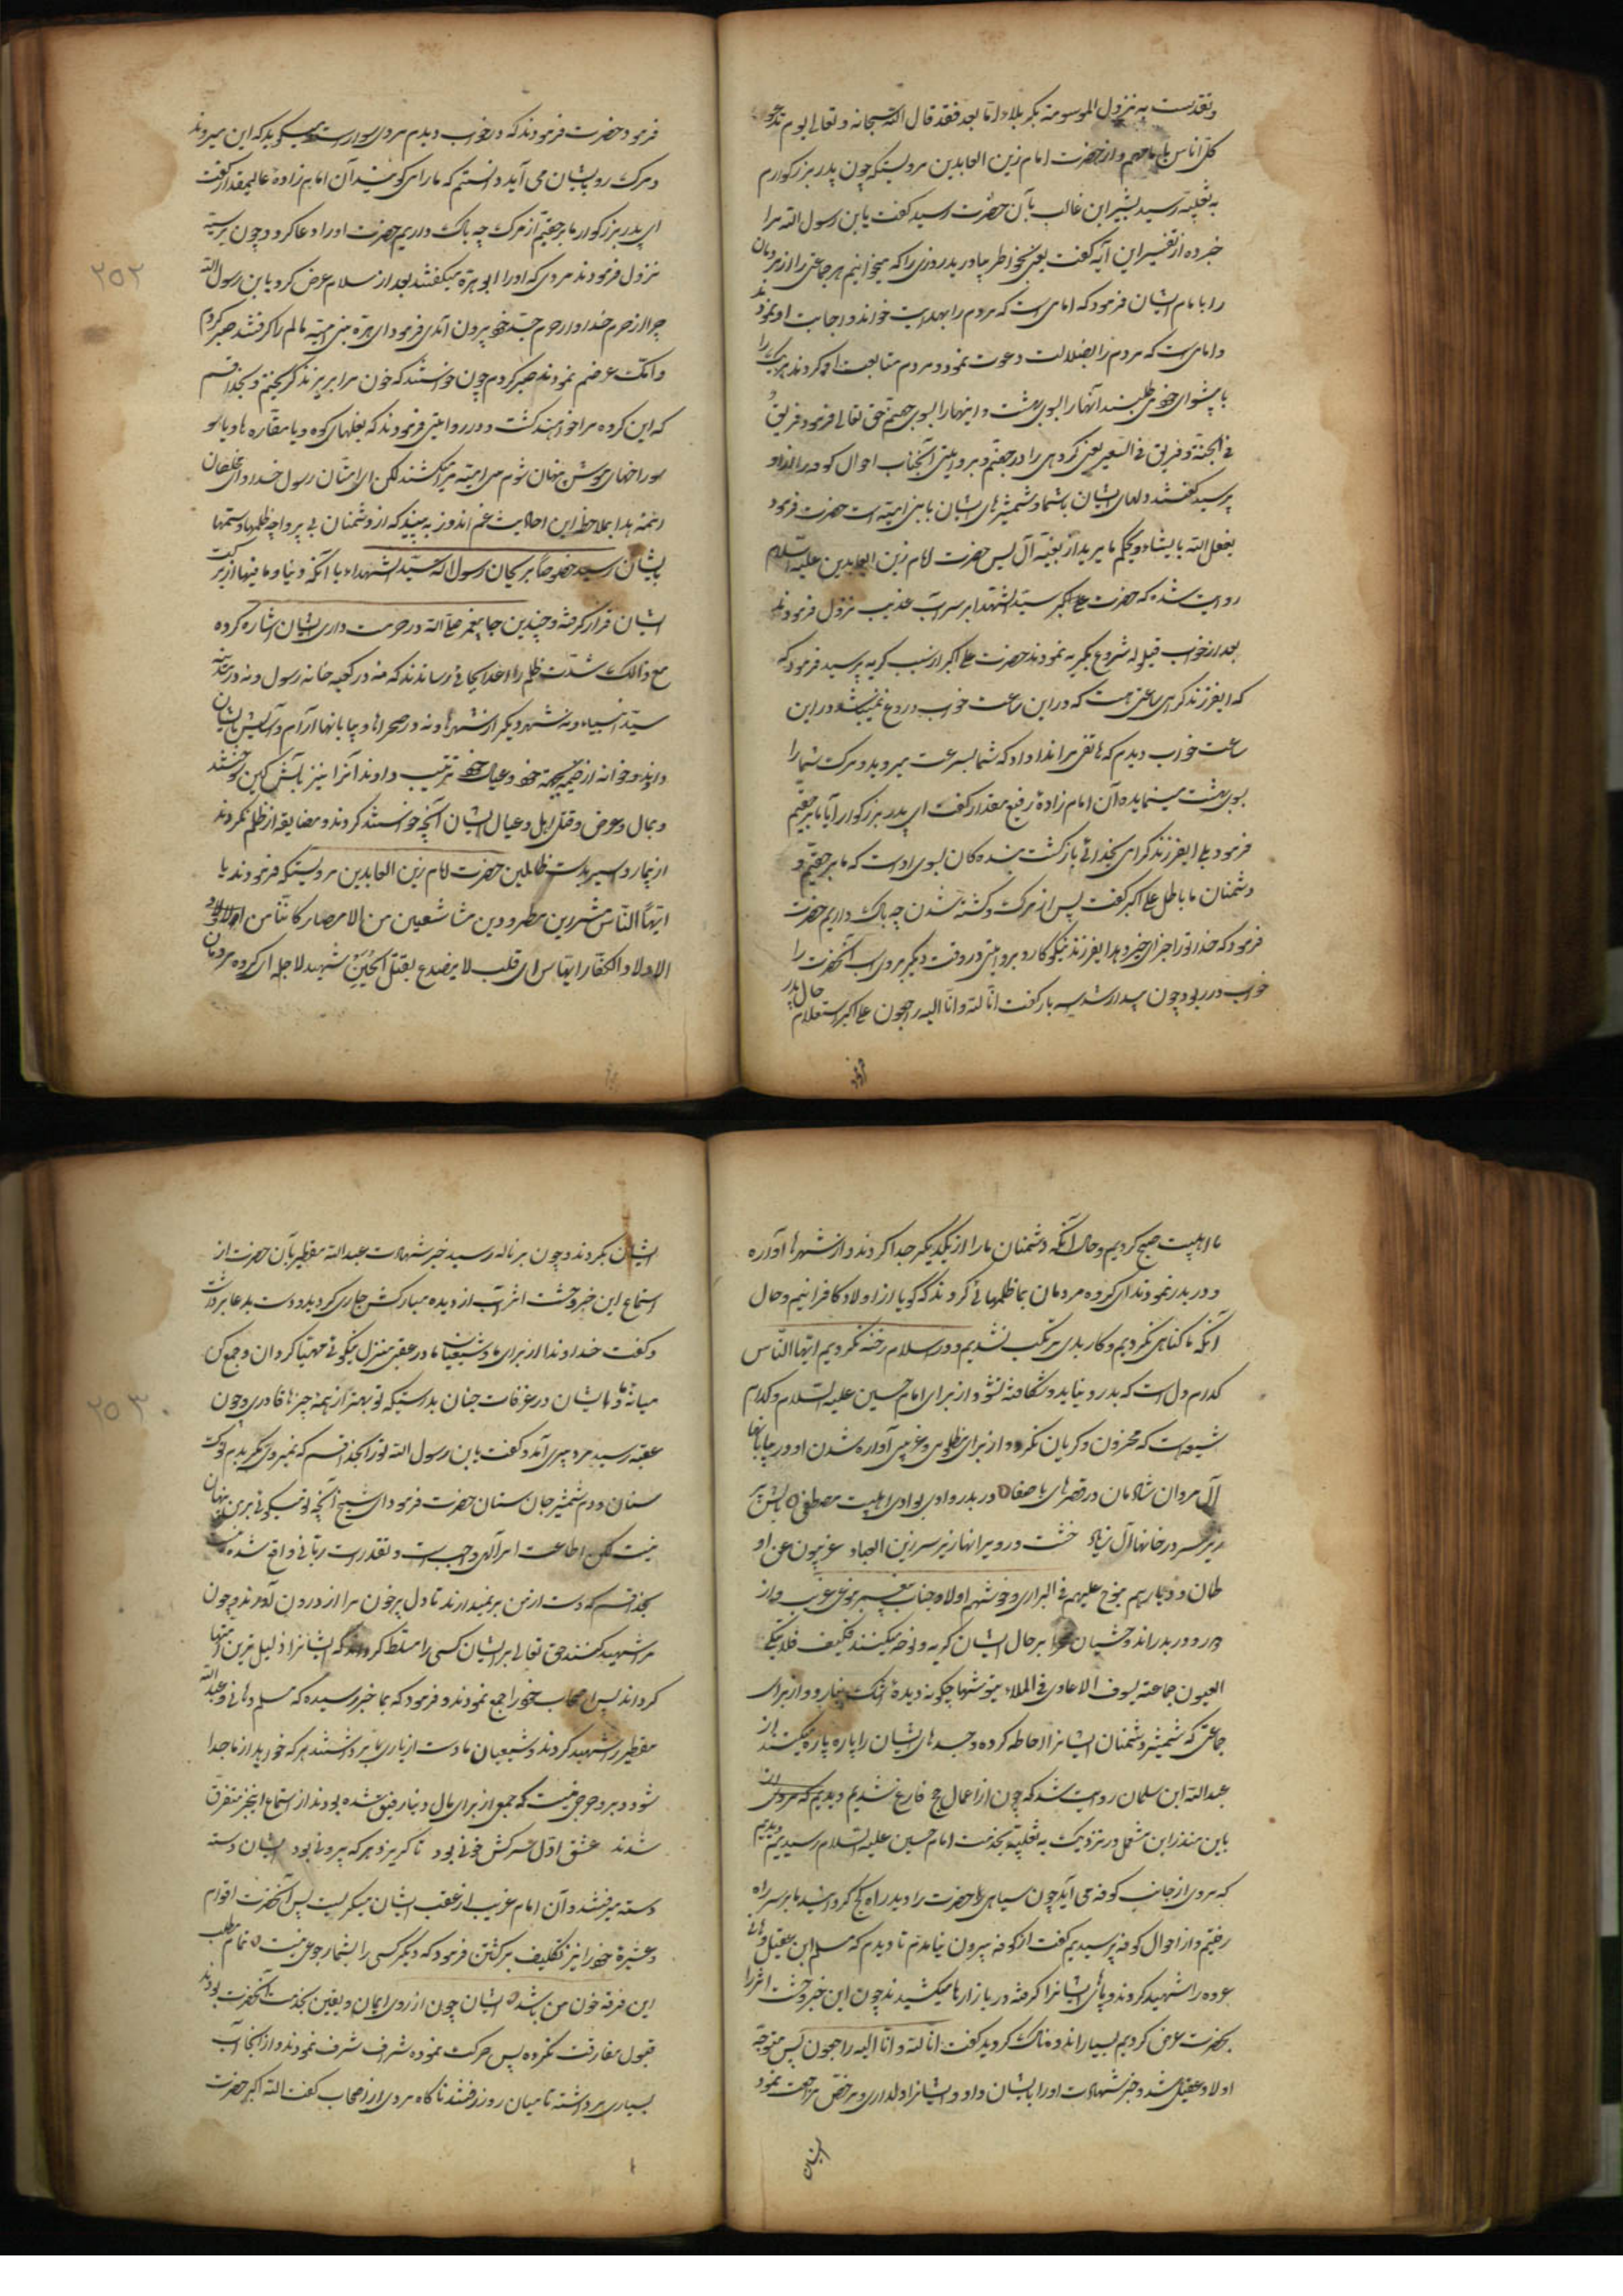 وتقدست به نزول الموسومة بکربلا و اما بعد فقد قال الله سبحانه و تعالی یوم ندعو
کل اناس بامامهم و از حضرت امام زین العابدین مرویستکه چون پدر بزرکوارم
به ثعلبیه رسید بشیر ابن غالب بآن حضرت رسید کفت یا بن رسول الله مرا
خبر ده از تفسیر این آیه کفت یعنی بخواطر بیاورید روزی را که میخوانیم هر جماعتی را از مردمان
را با امام ایشان فرمود که امامی است که مردم را بهدایت خواند و اجابت او نمودند
و امامی است که مردم را بضلالت دعوت نمود و مردم متابعت او کردند هر یک را
با پیشوای خود می طلبند آنها را بسوی بهشت و اینها را بسوی جهنم حق تعالی فرمود فریق
فی الجنة و فریق فی السعیر یعنی کروهی را در جهنم و بروایتی آنجناب احوال کوفه را از او
پرسید کفتند دلهای ایشان باشما و شمشیرهای ایشان با بنی امیه است حضرت فرمود
یفعل الله ما یشاء و یحکم ما یرید از بقیه آل یس حضرت امام زین العابدین علیه السلام
روایت شده که حضرت علی اکبر سید الشهدا بر سر آب عذیب نزول فرمودند
بعد از خواب قیلوله شروع بکریه نمودند حضرت علی اکبر از سبب کریه پرسید فرمود که
که ایفرزند کرامی ساعتی هست که در این ساعت خواب دروغ نمیباشد در این
ساعت خواب دیدم که هاتفی مرا ندا داد که شما بسرعت میروید و مرک شما را
بسوی بهشت مینماید آن امام زادهٔ رفیع مقدار کفت ای پدر بزرکوار آیا ما بر حقیم
فرمود بلی ایفرزند کرامی بخدائی بازکشت بنده کان بسوی اوست که ما بر حقیم و
دشمنان ما باطل علی اکبر کفت پس از مرک و کشته شدن چه باک داریم حضرت
فرمود که خدا تو را جزای خیر دهد ایفرزند نیکو کار و بروایتی در وقت دیکر بر روی اسب آنحضرت را
خواب در ربود چون بیدار شد سه بار کفت انا لله و انا الیه راجعون علی اکبر استعلام حال پدر
فرمود
فرمود حضرت فرمودند که در خواب دیدم مردی سوار است میکوید که این میروند
و مرک رو بایشان می آید دانستم که ما را می کوید آن امام زادهٔ عالیمقدار کفت
ای پدر بزرکوار ما بر حقیم از مرک چه باک داریم حضرت او را دعا کرد و چون
نزول فرمودند مردی که او را ابو هره میکفتند بعد از سلام عرض کرد یا بن رسول الله
چرا از حرم خدا و از حرم جد خود بیرون آمدی فرمود ای هره بنی امیه مالم را کرفتند صبر کردم
و هتک عرضم نمودند صبر کردم چون خواستند که خون مرا بریزند کریختم و بخدا قسم
که این کروه مرا خواهند کشت و در روایتی فرمودند که بغلهای کوه و یا مغاره ها و یا بو
سوراخهای موش پنهان شوم بنی امیه مرا میکشند لکن ای امتان رسول خدا و ای مخلصان
ائمه هدا بملاحظه این احادیث غم اندوز به بیند که از دشمنان بی پروا چه ظلمها و ستمها
بایشان رسید خصوصا بریحان رسول اله سید الشهدا با آنکه دنیا و ما فیها از برکت
ایشان قرار کرفته و چندین جا پیغمبر صلی الله در حرمت داری ایشان اشاره کرده
مع ذالک شدت ظلم را اعدا بجائی رساندند که منه در کعبه خانه رسول و نه در مدینه
سید انبیاء و نه شهر دیکر از شهرها و نه در صحراها و بیابانها آرام و آسایش بایشان
دادند و خوانه از خیمه خود و عیال خود ترتیب دادند آنرا نیز بآتش کین سوختند
و بمال و عرض و قتل اهل و عیال ایشان آنچه خواستند کردند و مضایقه از ظلم نکردند
از بیمار و اسیر بدست ظالمین حضرت امام زین العابدین مرویستکه فرمودند یا
ایها الناس مشردین مطرودین شاسعین من الامصار کاننا من اولاد
الاولاد الکفار ایها الناس ای قلب لا یرضدع بقتل الحسین شهید لاجله ای کروه مردمان
۲۵۲
ما اهلبیت صبح کردیم و حال آنکه دشمنان ما را از یکدیکر جدا کردند و از شهرها آواره
و دربدر نمودند ای کروه مردمان بما ظلمهائی کردند که کویا از اولاد کافرانیم و حال
آنکه ما کناهی نکردیم و کار بدی مرتکب نشدیم و در اسلام رخنه نکردیم ایها الناس
کدام دل است که بدرد نیاید و شکافته نشود از برای امام حسین علیه السلام و کدام
شیعه است که محزون و کریان نکردد از برای مظلومی و غریبی آواره شدن او در بیابانها
آل مروان شادمان در قصرهای با صفا دربدر وادی بوادی اهلبیت مصطفی بالش پر
زیر سر در خانها آل زیاد خشت در ویرانها زیر سر زین العباد غریبون عن او
طان و دیارهم ینوح علیهم فی البراری وحوشهم اولاد جناب پیغمبر نوعی غریب و از
در و دربدر اند و حشیان صحرا بر حال ایشان کریه و نوحه میکنند فکیف فلا تبکی
العیون جماعته یسوف الاعادی فی الملاء ینوشها چکونه دیدهٔ اشک نبارد و از برای
جماعتی که شمشیر دشمنان ایشانرا احاطه کرده و جسدهای ایشان را پاره پاره میکنند از
عبد الله ابن سلمان روایت شد که چون از اعمال حج فارغ شدیم و دیدیم که مردی
باین منذر ابن مشمعل در نزدیک به ثعلبیه بخدمت امام حسین علیه السلام رسیدیم دیدیم
که مردی از جانب کوفه می آید چون سیاهی حضرت را دید راه کج کرد ما بر سر راه
رفتیم و از احوال کوفه پرسیدیم کفت از کوفه بیرون نیامدم تا دیدم که مسلم ابن عقیل و هانی
عروه را شهید کردند و پاهای ایشانرا کرفته در بازارها میکشیدند چون این خبر وحشت اثر را
بحضرت عرض کردیم بسیار اندوهناک کردید کفت انا لله و انا الیه راجعون پس متوجه
اولاد عقیل شد و خبر شهادت او را بایشان داد و ایشانرا دلداری و مرخص مراجعت نمود
ایشان
ایشان نکردند و چون بزباله رسید خبر شهادت عبد الله یقطر بآن حضرت از
استماع این خبر وحشت اثر آب از دیده مبارکش جاری کردید و دست بدعا برداشت
و کفت خداوندا از برای ما و شیعیان ما در عقبی منزل نیکوئی مهیا کردان و جمع کن
میانهٔ ما و ایشان در غرفات جنان بدرستیکه تو بهمه چیزها قادری و چون
عقبه رسید مرد پیری آمد و کفت یا بن رسول الله تو را بخدا قسم که نمیروی مکر بدم نوک
سنان و دم شمشیر جان ستان حضرت فرمود ای شیخ آنچه تو میکوئی بر من پنهان
نیست لکن اطاعت امر الهی واجب است و تقدیرات ربانی واقع شده نیست
بخدا قسم که دست از من برنمیدارند تا دل پر خون مرا از درون آورند و چون
مرا شهید کنند حق تعالی بر ایشان کسی را مسلط کرداند که ایشانرا ذلیل ترین امتها
کرداند پس اصحاب خود را جمع نمودند و فرمود که بما خبر رسیده که مسلم و هانی و عبد الله
یقطر را شهید کردند و شیعیان ما دست از یاری ما برداشتند هر که خواهد از ما جدا
شود و برود حرجی نیست که جمعی از برای مال دنیا رفیق شده بودند از استماع اینخبر متفرق
شدند عشق اول سرکش خونی بود تا کریزد هر که بیرونی بود ایشان دسته
دسته میرفتند و آن امام غریب از عقب ایشان میکریست پس آنحضرت اقوام
و عشیرهٔ خود را نیز تکلیف برکشتن فرمود که دیکر کسی را بشما رجوعی نیست تمام مطلب
این فرقه خون من باشد ایشان چون از روی ایمان و یقین بخدمت آنحضرت بودند
قبول مفارقت نکرده پس حرکت نموده بشراف شرف نمودند و از آنجا آب
بسیاری برداشته تا میان روز رفتند ناکاه مردی از اصحاب کفت الله اکبر حضرت
۲۵۳